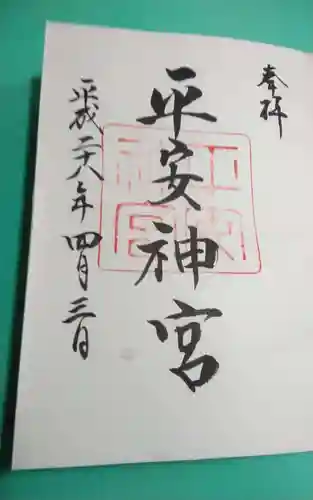 奉拝
平安神宮
平成二十八年四月三日